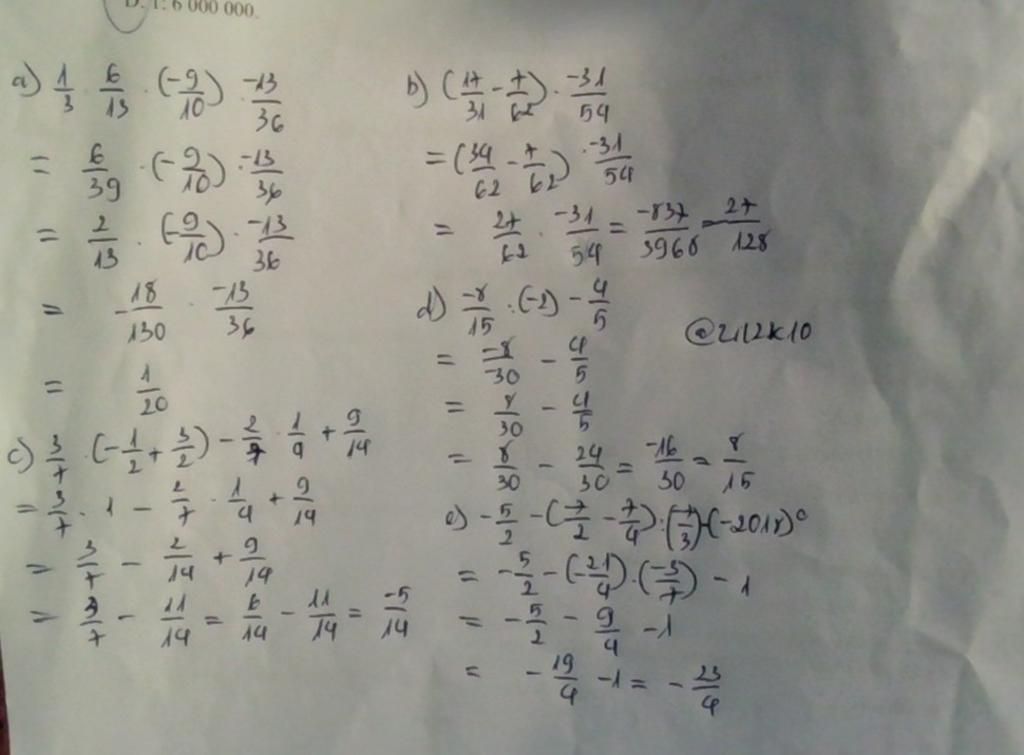 D. 1: 6 000 000.
a) 1/3 · 6/13 · (-9/10) · -13/36
= 6/39 · (-9/10) · -13/36
= 2/13 · (-9/10) · -13/36
= -18/130 · -13/36
= 1/20
c) 3/7 · (-1/2 + 3/2) - 2/7 · 1/9 + 9/14
= 3/7 · 1 - 2/7 · 1/4 + 9/14
= 3/7 - 2/14 + 9/14
= 3/7 - 11/14 = 6/14 - 11/14 = -5/14
b) (17/31 - 7/62) · -31/54
= (34/62 - 7/62) · -31/54
= 27/62 · -31/54 = -837/3968 = 27/128
d) -8/15 : (-2) - 4/5
= -8/-30 - 4/5
= 8/30 - 4/5
= 8/30 - 24/30 = -16/30 = 8/15
e) -5/2 - (7/2 - 7/4) : (7/3) - (-2018)°
= -5/2 - (-21/4) · (-3/7) - 1
= -5/2 - 9/4 - 1
= -19/4 - 1 = -23/4